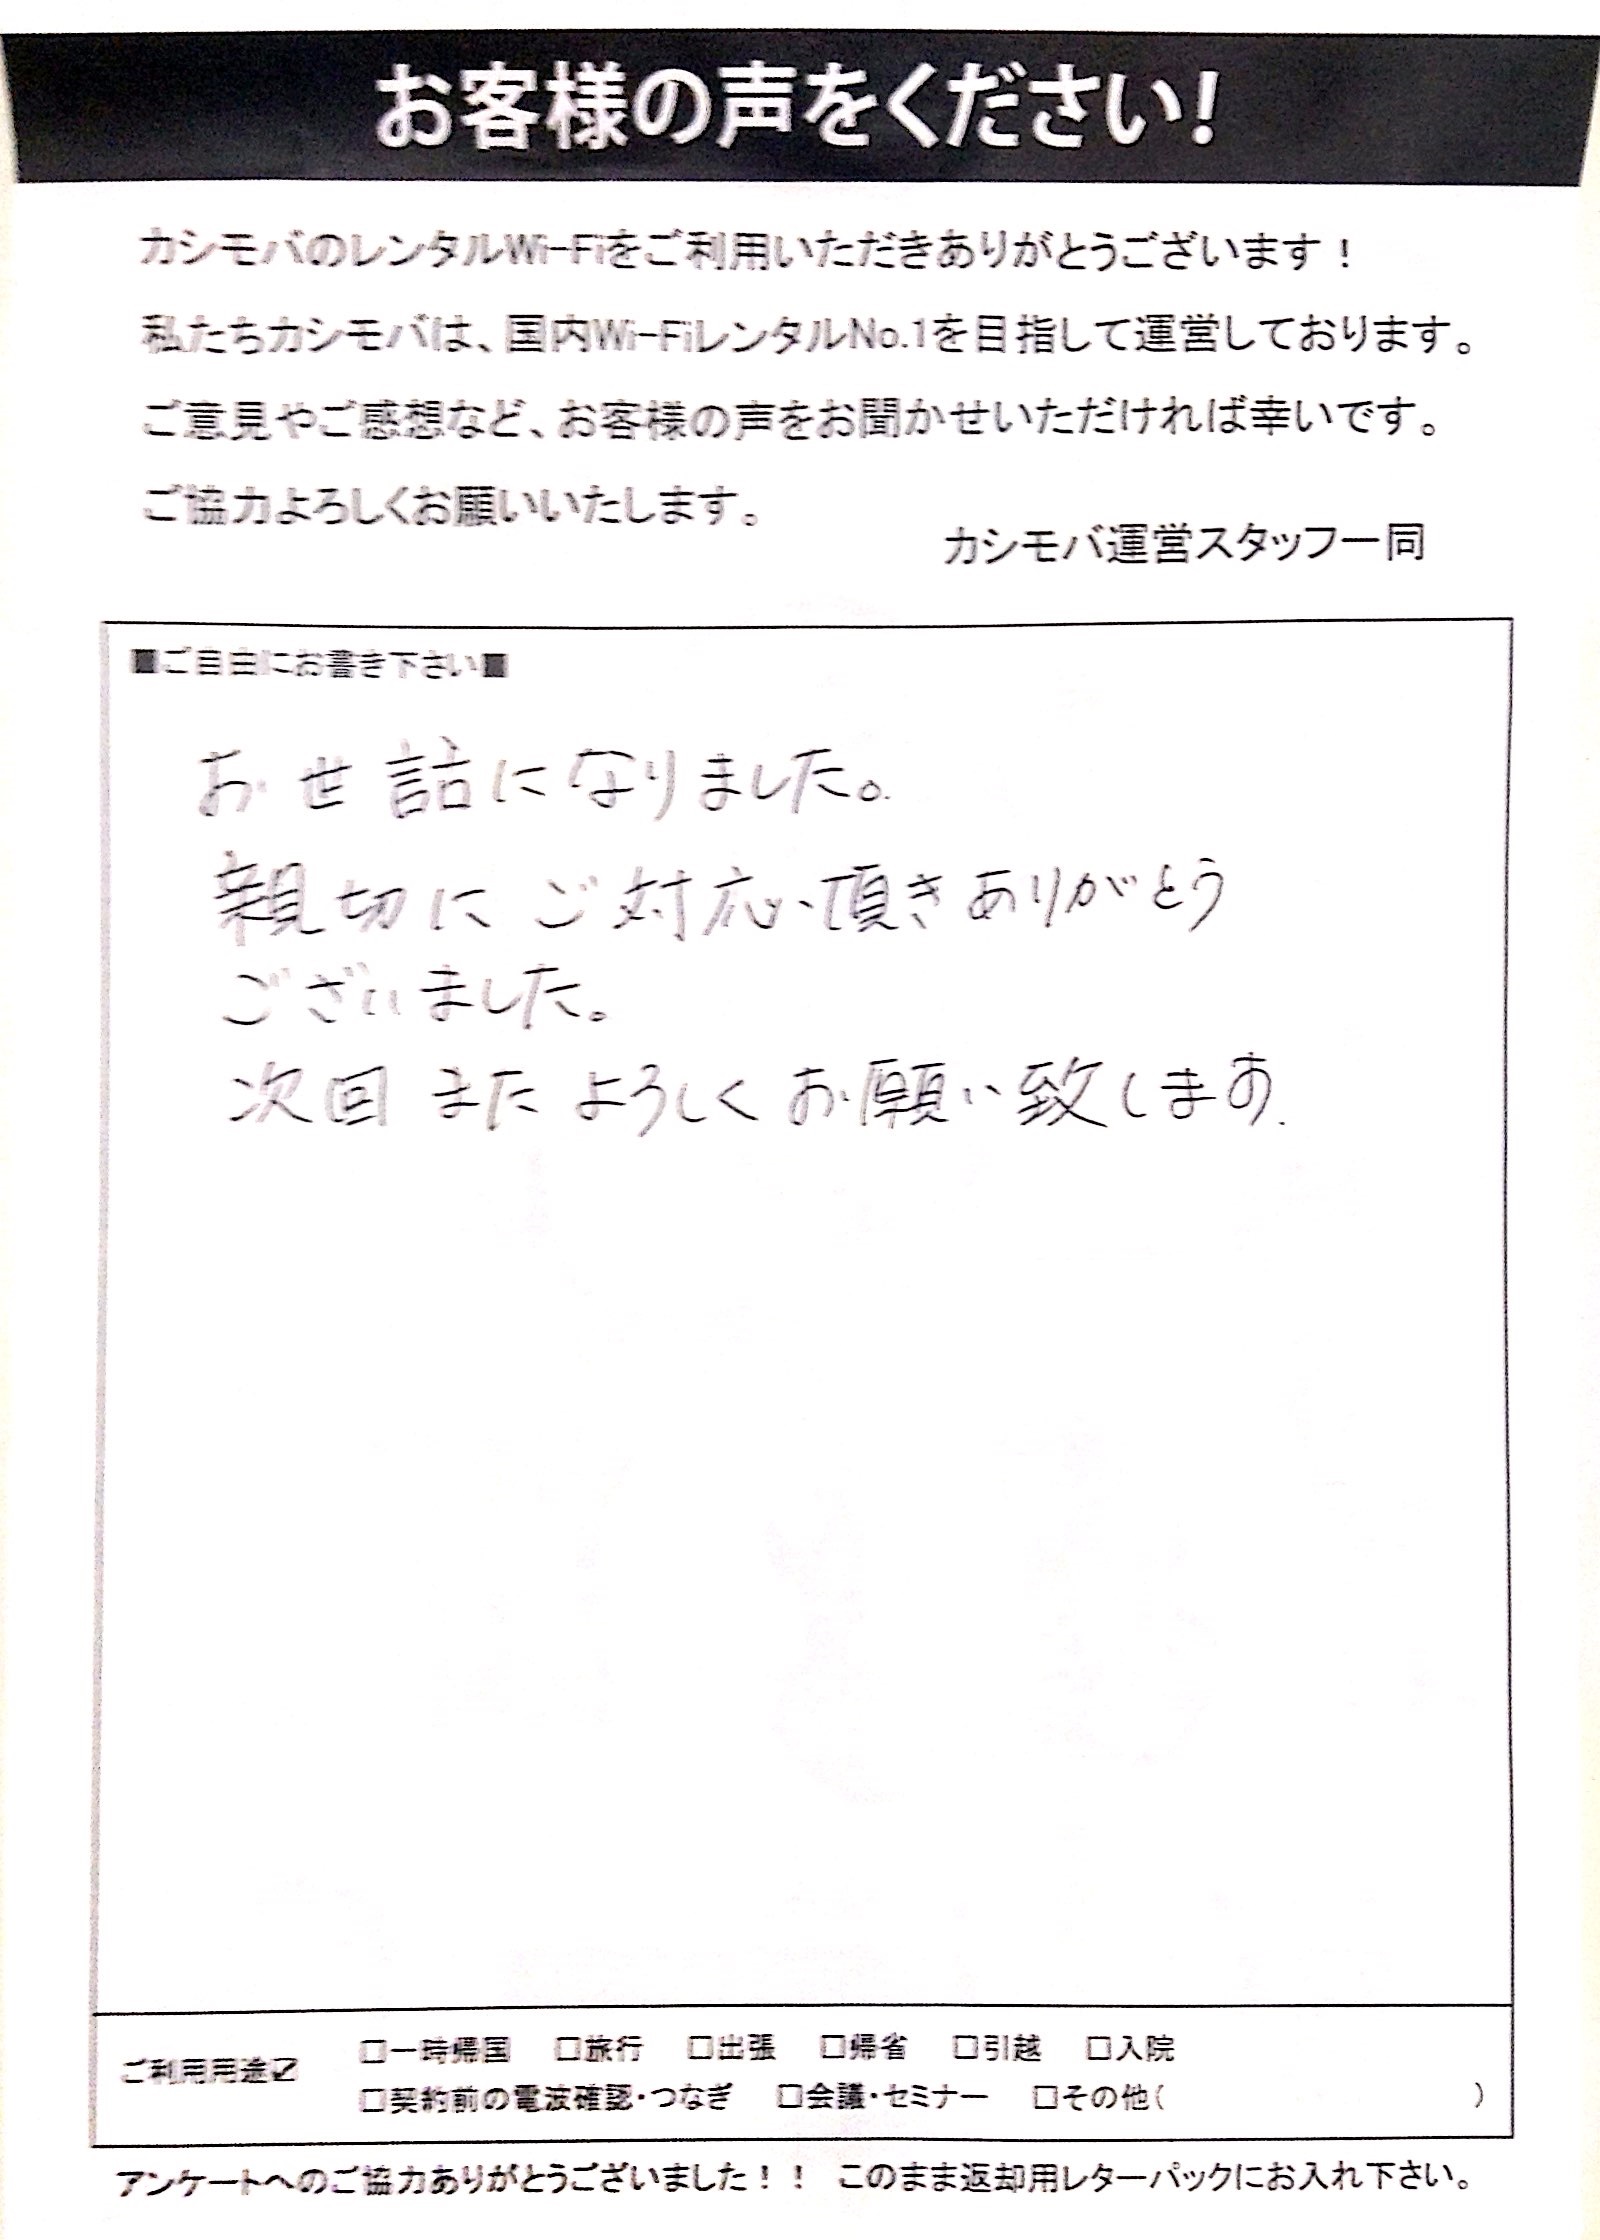 お客様の声をください!
カシモバのレンタルWi-Fiをご利用いただきありがとうございます！
私たちカシモバは、国内Wi-FiレンタルNo.1を目指して運営しております。
ご意見やご感想など、お客様の声をお聞かせいただければ幸いです。
ご協力よろしくお願いいたします。
カシモバ運営スタッフ一同
■ご自由にお書き下さい■
お世話になりました。
親切にご対応頂きありがとう
ございました。
次回またよろしくお願い致します.
ご利用用途☑
□一時帰国 □旅行 □出張 □帰省 □引越 □入院
□契約前の電波確認・つなぎ □会議・セミナー □その他( )
アンケートへのご協力ありがとうございました！！ このまま返却用レターパックにお入れ下さい。